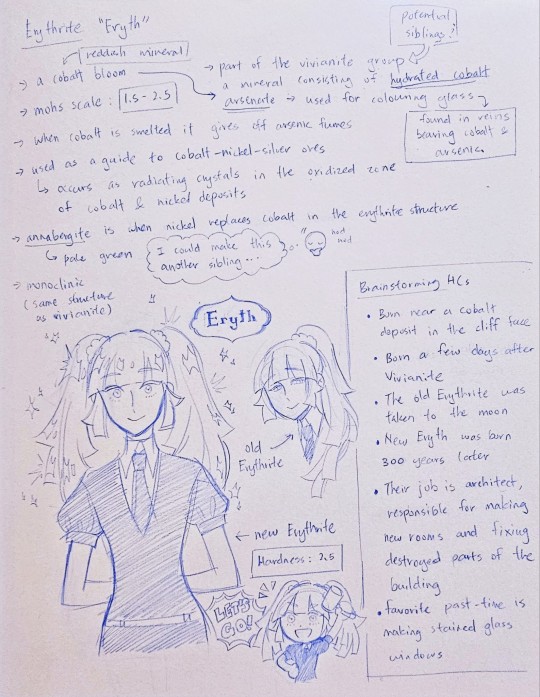 Erythrite "Eryth"
reddish mineral
→ a cobalt bloom
→ mohs scale : 1.5 - 2.5
→ part of the vivianite group
potential
siblings!
a mineral consisting of hydrated cobalt
arsenate → used for colouring glass
found in veins
bearing cobalt &
arsenic
→ when cobalt is smelted it gives off arsenic fumes
→ used as a guide to cobalt-nickel-silver ores
↳ occurs as radiating crystals in the oxidized zone
of cobalt & nickel deposits
→ annabergite is when nickel replaces cobalt in the erythrite structure
↳ pale green
I could make this
another sibling...
→ monoclinic
(same structure
as vivianite)
Eryth
old
Erythrite
← new Erythrite
Hardness: 2.5
LET'S
GO!
Brainstorming HCs
• Born near a cobalt
deposit in the cliff face
• Born a few days after
Vivianite
• The old Erythrite was
taken to the moon
• New Eryth was born
300 years later
• Their job is architect,
responsible for making
new rooms and fixing
destroyed parts of the
building
• favorite past-time is
making stained glass
windows